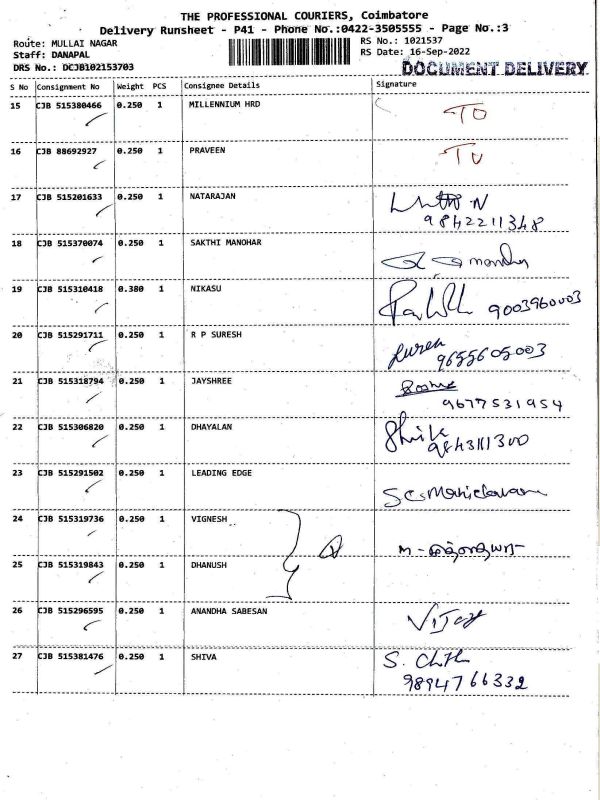 THE PROFESSIONAL COURIERS, Coimbatore
Delivery Runsheet - P41 - Phone No.:0422-3505555 - Page No.:3
Route: MULLAI NAGAR RS No.: 1021537
Staff: DANAPAL RS Date: 16-Sep-2022
DRS No.: DCJB102153703 DOCUMENT DELIVERY
S No Consignment No Weight PCS Consignee Details Signature
15 CJB 515380466 0.250 1 MILLENNIUM HRD TO
16 CJB 88692927 0.250 1 PRAVEEN
17 CJB 515201633 0.250 1 NATARAJAN
9842211348
18 CJB 515370074 0.250 1 SAKTHI MANOHAR
19 CJB 515310418 0.380 1 NIKASU 9003960003
20 CJB 515291711 0.250 1 R P SURESH
9655605003
21 CJB 515318794 0.250 1 JAYSHREE
9677531954
22 CJB 515306820 0.250 1 DHAYALAN
23 CJB 515291502 0.250 1 LEADING EDGE
24 CJB 515319736 0.250 1 VIGNESH
25 CJB 515319843 0.250 1 DHANUSH
26 CJB 515296595 0.250 1 ANANDHA SABESAN VIJAY
27 CJB 515381476 0.250 1 SHIVA
9894766332